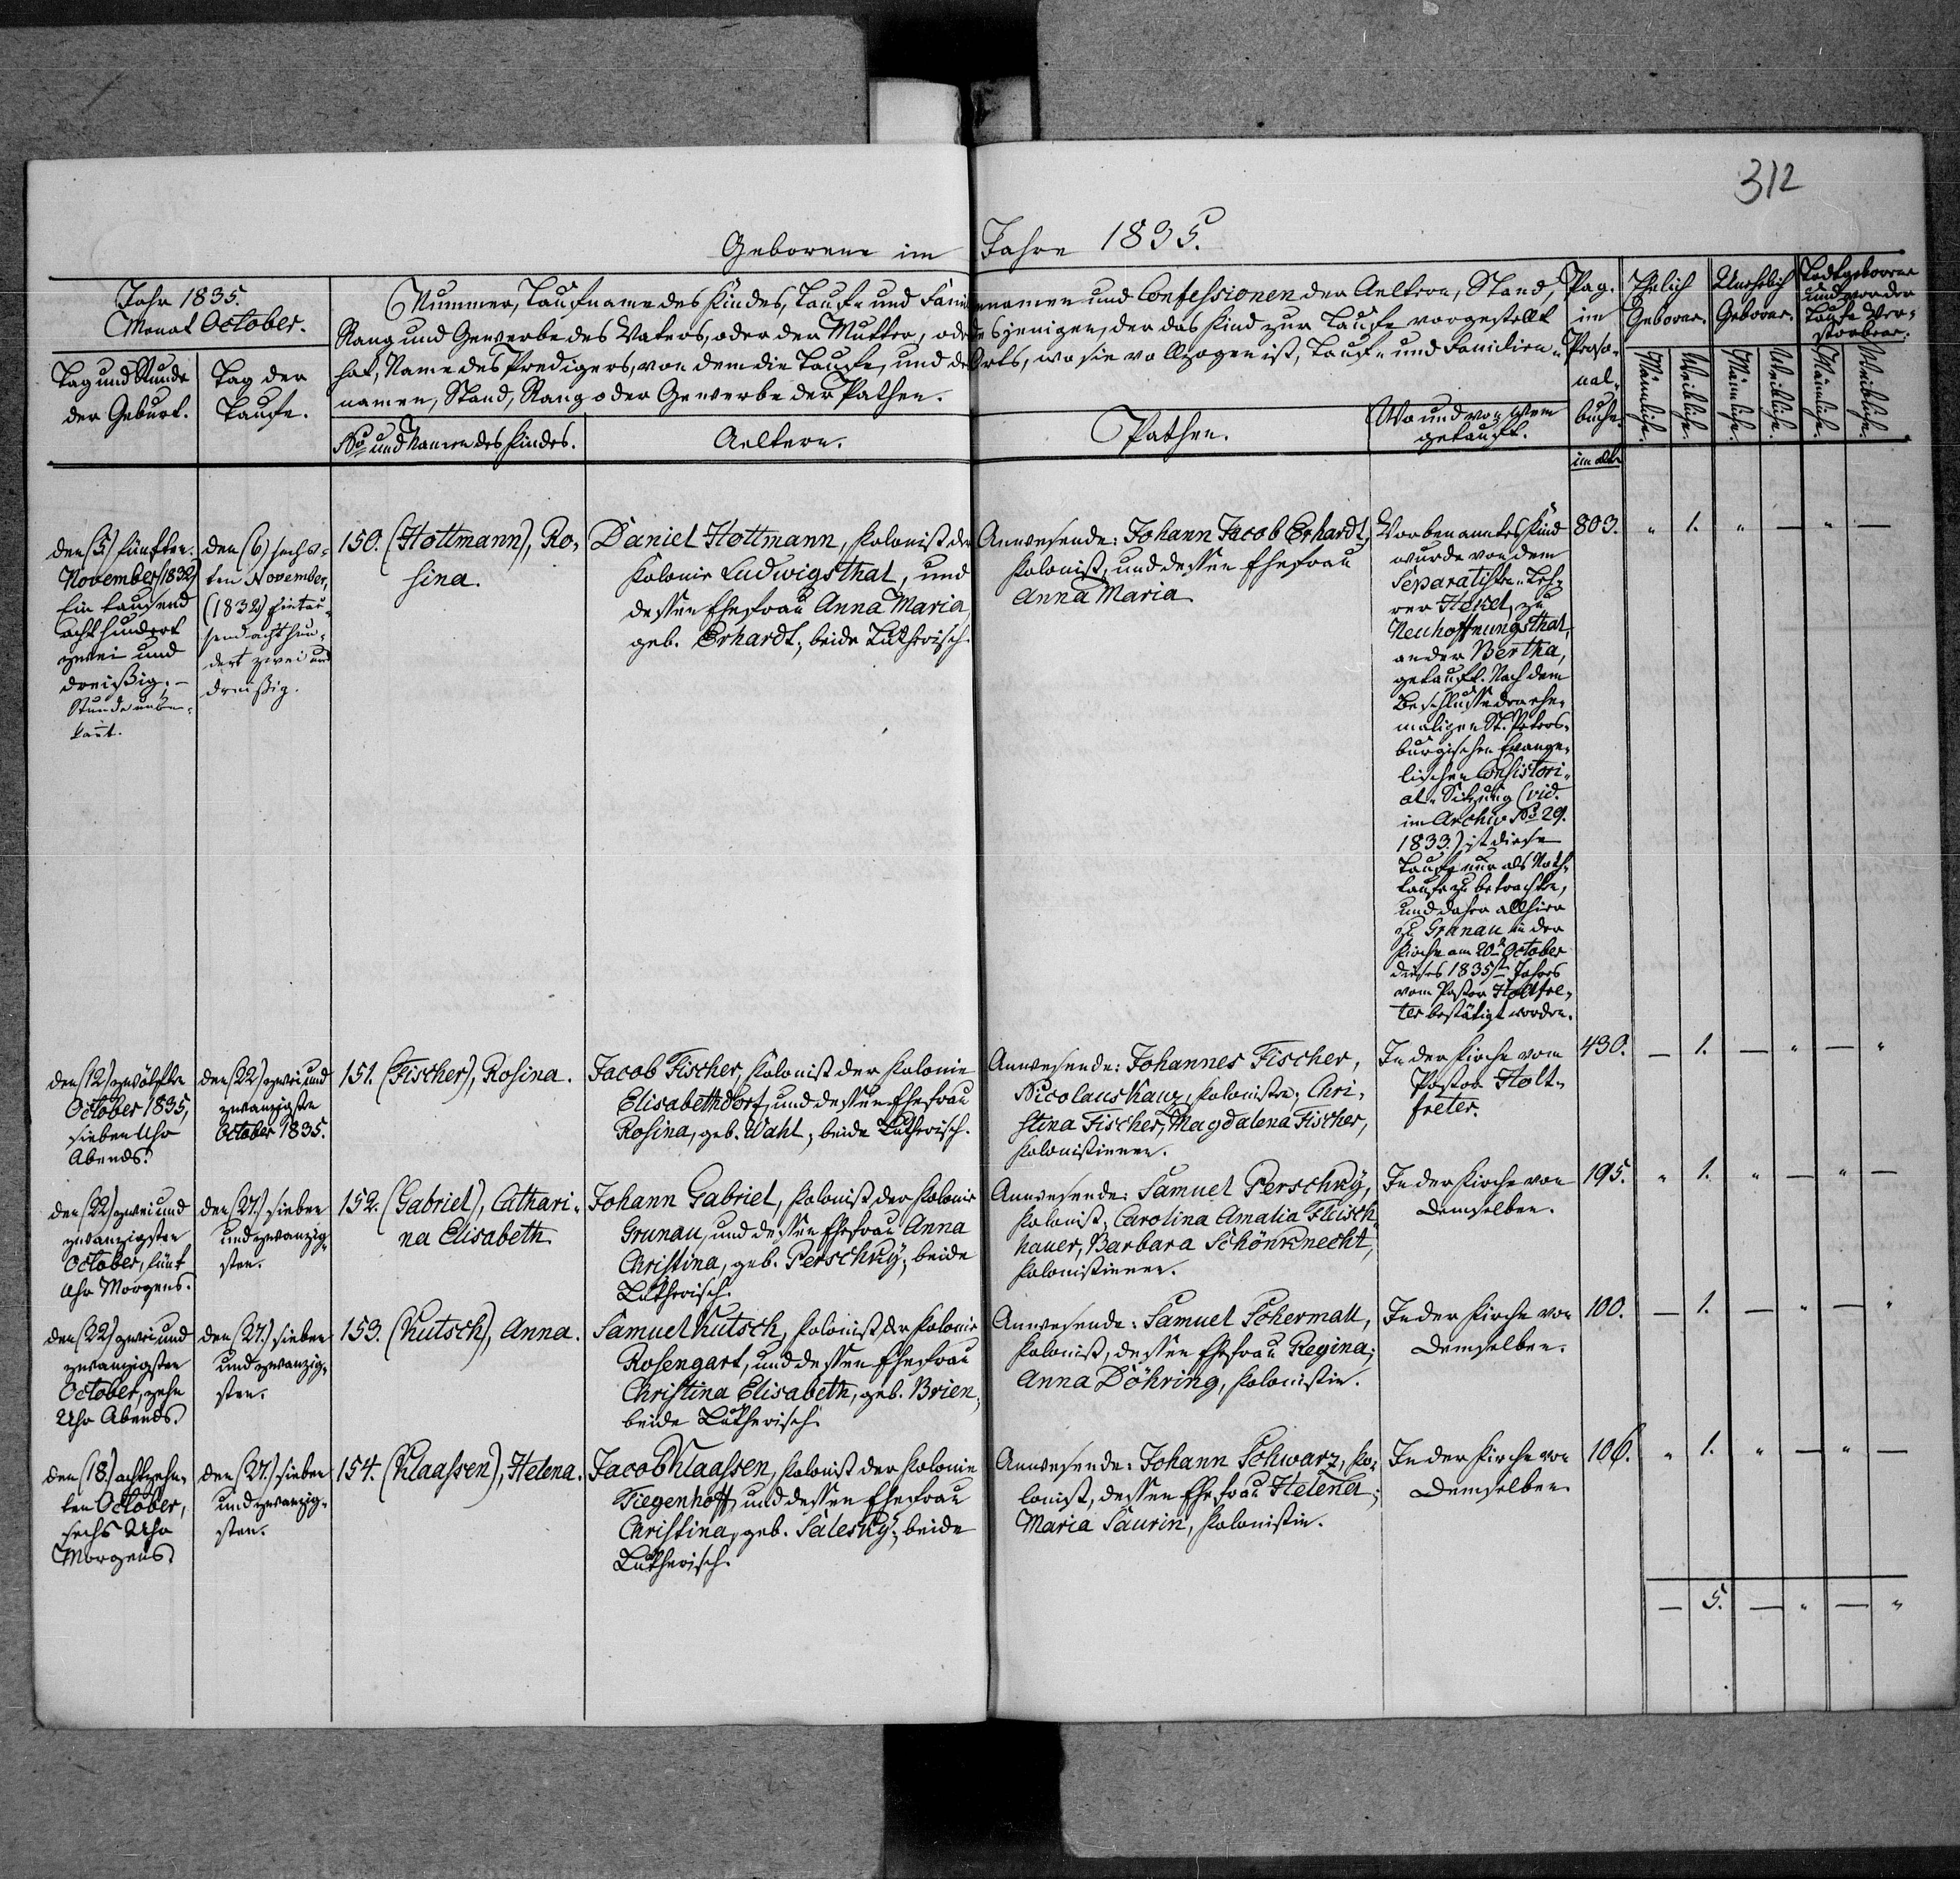 312
Geborene im Jahre 1835.
Jahr 1835.
Monat October.
Tag und Stunde
der Geburt.
Tag der
Taufe.
Nummer, Taufname des Kindes, Tauf- und Familiennamen und Confessionen der Aeltern, Stand,
Rang und Gewerbe des Vaters, oder der Mutter, oder desjenigen, der das Kind zur Taufe vorgestellt
hat, Name des Predigers, von dem die Taufe, und des Orts, wo sie vollzogen ist, Tauf- und Familien-
namen, Stand, Rang oder Gewerbe der Pathen.
No und Namen des Kindes.
Aeltern.
Pathen.
Wo und von wem
getauft.
Pag.
im
Perso-
nal-
buche.
im alten
Ehelich
Geboren.
Unehelich
Geboren.
Todtgeborene
und vor der
Taufe Ver-
storbene.
Männliche.
Weibliche.
Männliche.
Weibliche.
Männliche.
Weibliche.
den (5) fünften
November (1832)
Ein tausend
achthundert
zwei und
dreißig. –
Stunde unbe-
kannt.
den (6) sechs-
ten November,
(1832) Eintau-
send achthun-
dert zwei und
dreißig.
150. (Hottmann), Ro-
sina.
Daniel Hottmann, Kolonist der
Kolonie Ludwigsthal, und
dessen Ehefrau Anna Maria,
geb. Erhardt, beide Lutherisch.
Anwesende: Johann Jacob Erhardt,
Kolonist, und dessen Ehefrau
Anna Maria
Vorbenanntes Kind
wurde von dem
Separatisten-Leh-
rer Hekel, zu
Neuhoffnungsthal,
an der Bertha,
getauft. Nach dem
Beschlusse der ehe-
maligen St. Peters-
burgischen Evange-
lischen Consistori-
al-Sitzung (vid.
im Archiv No 29.
1833.) ist diese
Taufe nur als Noth-
taufe zu betrachten,
und daher allhier
zu Grunau in der
Kirche am 20n October
dieses 1835sten Jahres
vom Pastor Holtfre-
ter bestätigt worden.
803. " 1. " – " –
den (12) zwölften
October 1835,
sieben Uhr
Abends.
den (22) zwei und
zwanzigsten
October 1835.
151. (Fischer), Rosina.
Jacob Fischer, Kolonist der Kolonie
Elisabethdorf, und dessen Ehefrau
Rosina, geb. Wahl, beide Lutherisch.
Anwesende: Johannes Fischer,
Nicolaus Kauz, Kolonisten; Chri-
stina Fischer, Magdalena Fischer,
Kolonistinnen.
In der Kirche vom
Pastor Holt-
freter.
430. – 1. – " – "
den (22) zwei und
zwanzigsten
October, fünf
Uhr Morgens.
den (27.) sieben
und zwanzig-
sten.
152. (Gabriel), Cathari-
na Elisabeth
Johann Gabriel, Kolonist der Kolonie
Grunau, und dessen Ehefrau Anna
Christina, geb. Perschky, beide
Lutherisch.
Anwesende: Samuel Perschky,
Kolonist, Carolina Amalia Fleisch-
hauer, Barbara Schönknecht,
Kolonistinnen.
In der Kirche von
Demselben.
195. " 1. " – " –
den (22) zwei und
zwanzigsten
October, zehn
Uhr Abends.
den (27.) sieben
und zwanzig-
sten.
153. (Kutsch), Anna.
Samuel Kutsch, Kolonist der Kolonie
Rosengart, und dessen Ehefrau
Christina Elisabeth, geb. Brien,
beide Lutherisch.
Anwesende: Samuel Schermall,
Kolonist, dessen Ehefrau Regina;
Anna Döhring, Kolonistin.
In der Kirche von
Demselben.
100. – 1. – " – "
den (18.) achtzehn-
ten October,
sechs Uhr
Morgens.
den (27.) sieben
und zwanzig-
sten.
154. (Klaassen), Helena.
Jacob Klaassen, Kolonist der Kolonie
Tiegenhoff, und dessen Ehefrau
Christina, geb. Salesky, beide
Lutherisch.
Anwesende: Johann Schwarz, Ko-
lonist, dessen Ehefrau Helena;
Maria Saurin, Kolonistin.
In der Kirche von
Demselben.
106. " 1. " – " –
– 5. – " – "